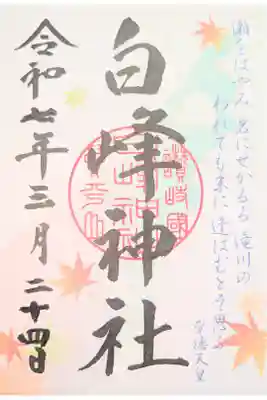 瀬をはやみ 岩にせかるる 滝川の
われても末に 逢はむとぞ思ふ
崇徳天皇
白峰神社
讃岐國
令和七年三月二十四日